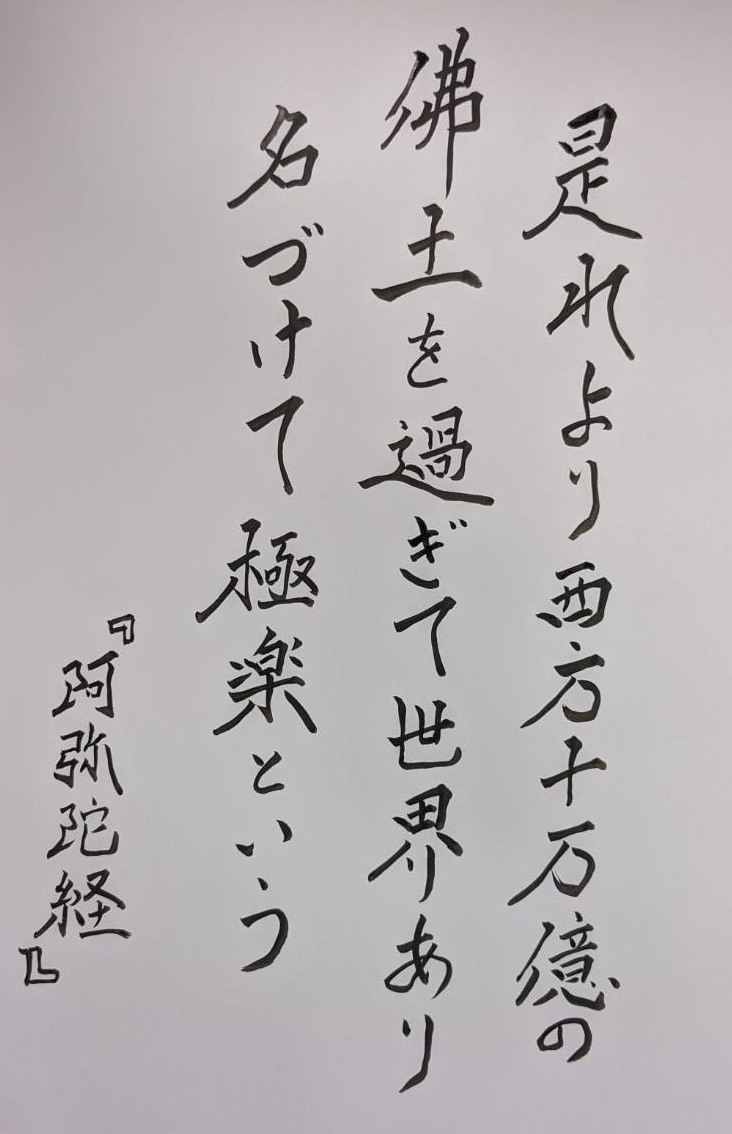 是れより西方十万億の
佛土を過ぎて世界あり
名づけて極楽という
『阿弥陀経』